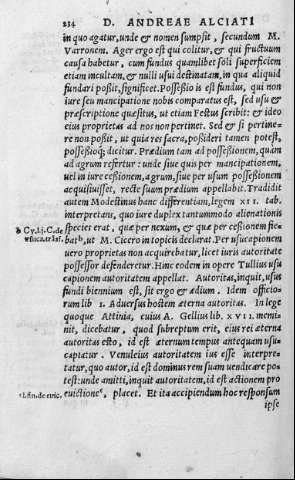 234 D. ANDREAE ALCIATI
in quo agatur, unde & nomen sumpsit, secundum M.
Varronem. Ager ergo est qui colitur, & qui fructuum
causa habetur, cum fundus quamlibet soli superficiem
etiam incultam, & nulli usui destinatam, in qua aliquid
fundari poßit, significet. Poßeßio is est fundus, qui non
iure seu mancipatione nobis comparatus est, sed usu &
præscriptione quæsitus, ut etiam Festus scribit: & ideo
eius proprietas ad nos non pertinet. Sed & si pertine-
re non poßit, ut quia res sacra, poßideri tamen potest,
poßeßioq; dicitur. Prædium tam ad poßeßionem, quàm
ad agrum refertur: unde siue quis per mancipationem,
uel in iure ceßionem, agrum, siue per usum poßeßionem
acquisiuisset, recte suum prædium appellabit. Tradidit
autem Modestinus hanc differentiam, legem XII. tab.
interpretans, quo iure duplex tantummodo alienationis
species erat, quæ per nexum, & quæ per ceßionem fie-
bat, ut M. Cicero in topicis declarat. Per usucapionem
uero proprietas non acquirebatur, licet iuris autoritate
possessor defenderetur. Hinc eodem in opere Tullius usu
capionem autoritatem appellat. Autoritas, inquit, usus
fundi biennium est, sit ergo & ædium. Idem officio-
rum lib 1. Aduersus hostem æterna autoritas. In lege
quoque Attinia, cuius A. Gellius lib. XVII. memi-
nit, dicebatur, quod subreptum erit, eius rei æterna
autoritas esto, id est æternum tempus antequam usu-
captatur. Venuleius autoritatem ius esse interpre-
tatur, quo autor, id est dominus rem suam uendicare po-
test: unde amitti, inquit autoritatem, id est actionem pro
euictione, placet. Et ita accipiendum hoc responsum
ipse